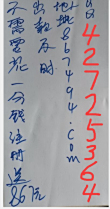 QQ42725364
地址867494.com
出款及时
不需要花一分钱注册送86元